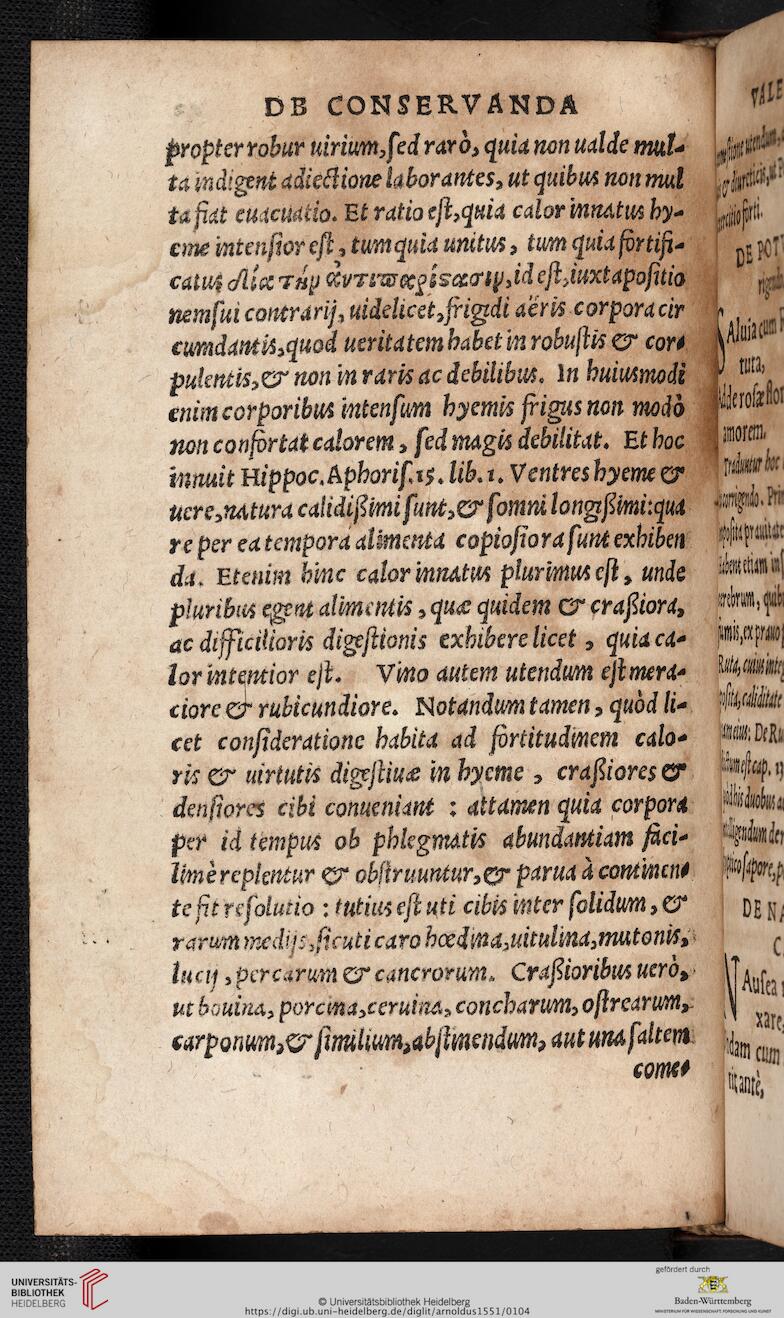 DE CONSERVANDA
propter robur uirium, sed rarò, quia non ualde mul-
ta indigent adiectione laborantes, ut quibus non mul
ta fiat euacuatio. Et ratio est, quia calor innatus hy-
eme intensior est, tum quia unitus, tum quia fortifi-
catus δία τὴν ἀντιπαρίςασιν, id est, iuxta positio
nem sui contrarij, uidelicet, frigidi aëris corpora cir
cumdantis, quod ueritatem habet in robustis & cor-
pulentis, & non in raris ac debilibus. In huiusmodi
enim corporibus intensum hyemis frigus non modò
non confortat calorem, sed magis debilitat. Et hoc
innuit Hippoc. Aphoris. 15. lib. 1. Ventres hyeme &
uere, natura calidißimi sunt, & somni longißimi: qua
re per ea tempora alimenta copiosiora sunt exhiben
da. Etenim hinc calor innatus plurimus est, unde
pluribus egent alimentis, quæ quidem & craßiora,
ac difficilioris digestionis exhibere licet, quia ca-
lor intentior est. Vino autem utendum est mera-
ciore & rubicundiore. Notandum tamen, quòd li-
cet consideratione habita ad fortitudinem calo-
ris & uirtutis digestiuæ in hyeme, craßiores &
densiores cibi conueniant : attamen quia corpora
per id tempus ob phlegmatis abundantiam faci-
limè replentur & obstruuntur, & parua à continen-
te fit resolutio : tutius est uti cibis inter solidum, &
rarum medijs, sicuti caro hœdina, uitulina, mutonis,
lucij, percarum & cancrorum. Craßioribus uerò,
ut bouina, porcina, ceruina, concharum, ostrearum,
carponum, & similium, abstinendum, aut una saltem
come-
VALE
DE POT
SAluia cum
tura,
amorem.
Traducitur hoc
DE NA
C
NAusea
xare,
dam cum
tit antè,
UNIVERSITÄTS-
BIBLIOTHEK
HEIDELBERG
© Universitätsbibliothek Heidelberg
https://digi.ub.uni-heidelberg.de/diglit/arnoldus1551/0104
gefördert durch
Baden-Württemberg
MINISTERIUM FÜR WISSENSCHAFT, FORSCHUNG UND KUNST